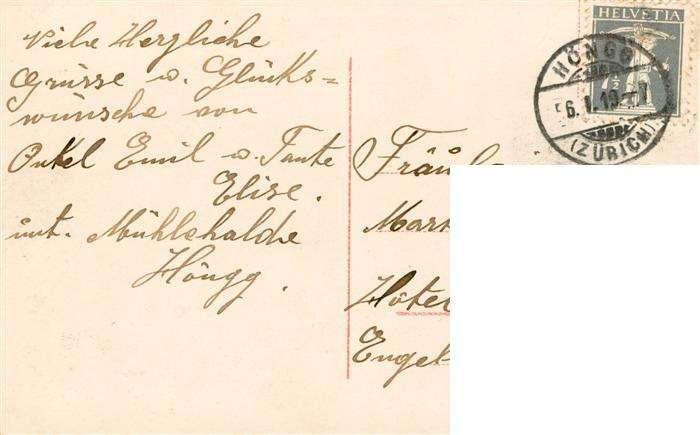 Viele Herzliche
Grüsse u. Glücks=
wünsche von
Onkel Emil u. Tante
Elise.
unt. Mühlehalde
Höngg.
HELVETIA
HÖNGG
(ZÜRICH)